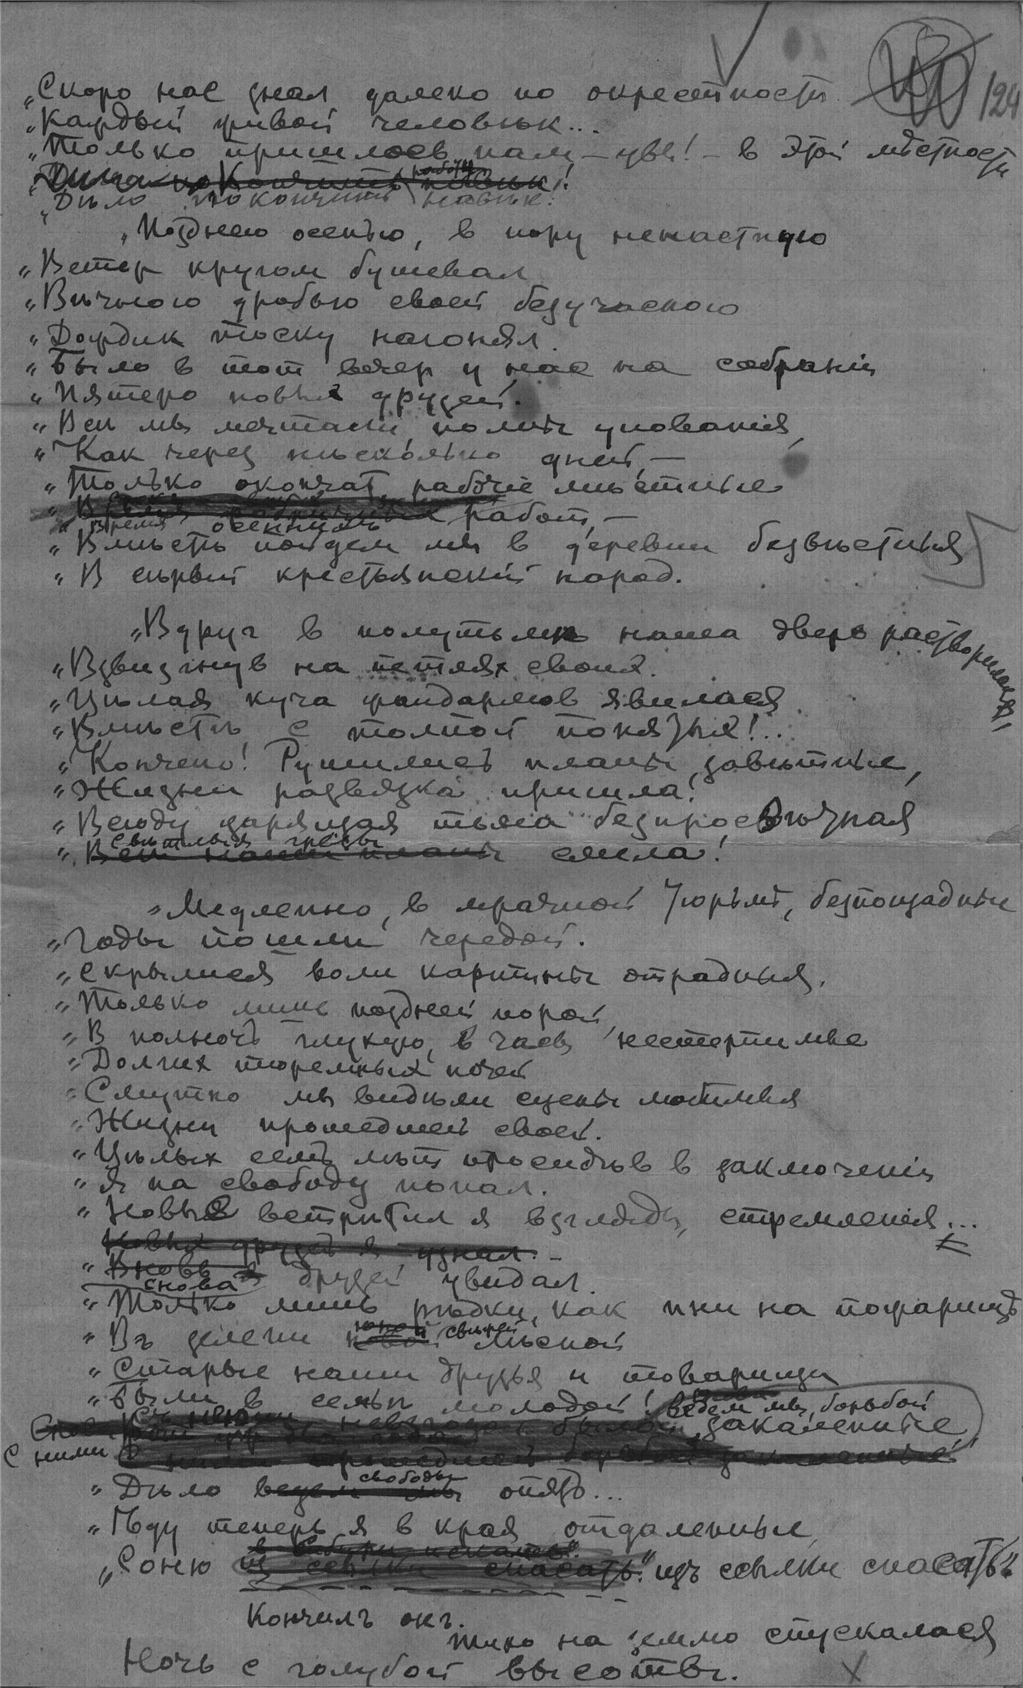 124
„Скоро нас знал далеко по окрестности
„Каждый живой человѣк...
„Только пришлось нам, – увы! – в этой мѣстности
работу
„Дѣло покончить навѣк!
„Позднею осенью, в пору ненастную
„Ветер кругом бушевал
„Вѣчною дробью своей безучасною
„Дождик тоску нагонял.
„Было в тот вечер у нас на собраніи
„Пятеро новых друзей.
„Всѣ мы мечтали, полны упованія,
„Как через нѣсколько дней, –
„Только окончат рабочіе мѣстные
„Время осенних работ, –
„Вмѣстѣ пойдем мы в деревни безвѣстныя
„В сѣрый крестьянскій народ.
„Вдруг в полутьмѣ наша дверь растворилася,
„Взвизгнув на петлях своих.
„Цѣлая куча жандармов явилася
„Вмѣстѣ с толпой понятых!...
„Кончено! Рушились планы завѣтные,
„Жизни развязка пришла!
„Всюду царящая тьма безпросвѣтная
свѣтлыя грезы
„Всѣ наши планы смела!
„Медленно, в мрачной тюрьмѣ, безпощадные
„Годы пошли чередой.
„Скрылися воли картины отрадныя,
„Только лишь поздней порой,
„В полночь глухую, в часы нестерпимые
„Долгих тюремных ночей
„Смутно мы видѣли сцены любимыя
„Жизни прошедшей своей.
„Цѣлых семь лѣт просидѣв в заключеніи
„Я на свободу попал.
„Новые встрѣтил я взгляды, стремленія...
Новых друзей я узнал. –
„Вновь я друзей увидал.
снова
„Только лишь рѣдки, как пни на пожарищѣ
юной свѣжей
„Въ зелени новой лѣсной
„Старые наши друзья и товарищи
„Были в семьѣ молодой!
ведем мы, борьбой
закаленные
С ними
свободы
„Дѣло ведем мы опять...
„Ѣду теперь я в края отдаленные
„Соню из ссылки спасать" изъ ссылки спасать"
Кончилъ он.
тихо на землю спускалася
Ночь с голубой высоты.